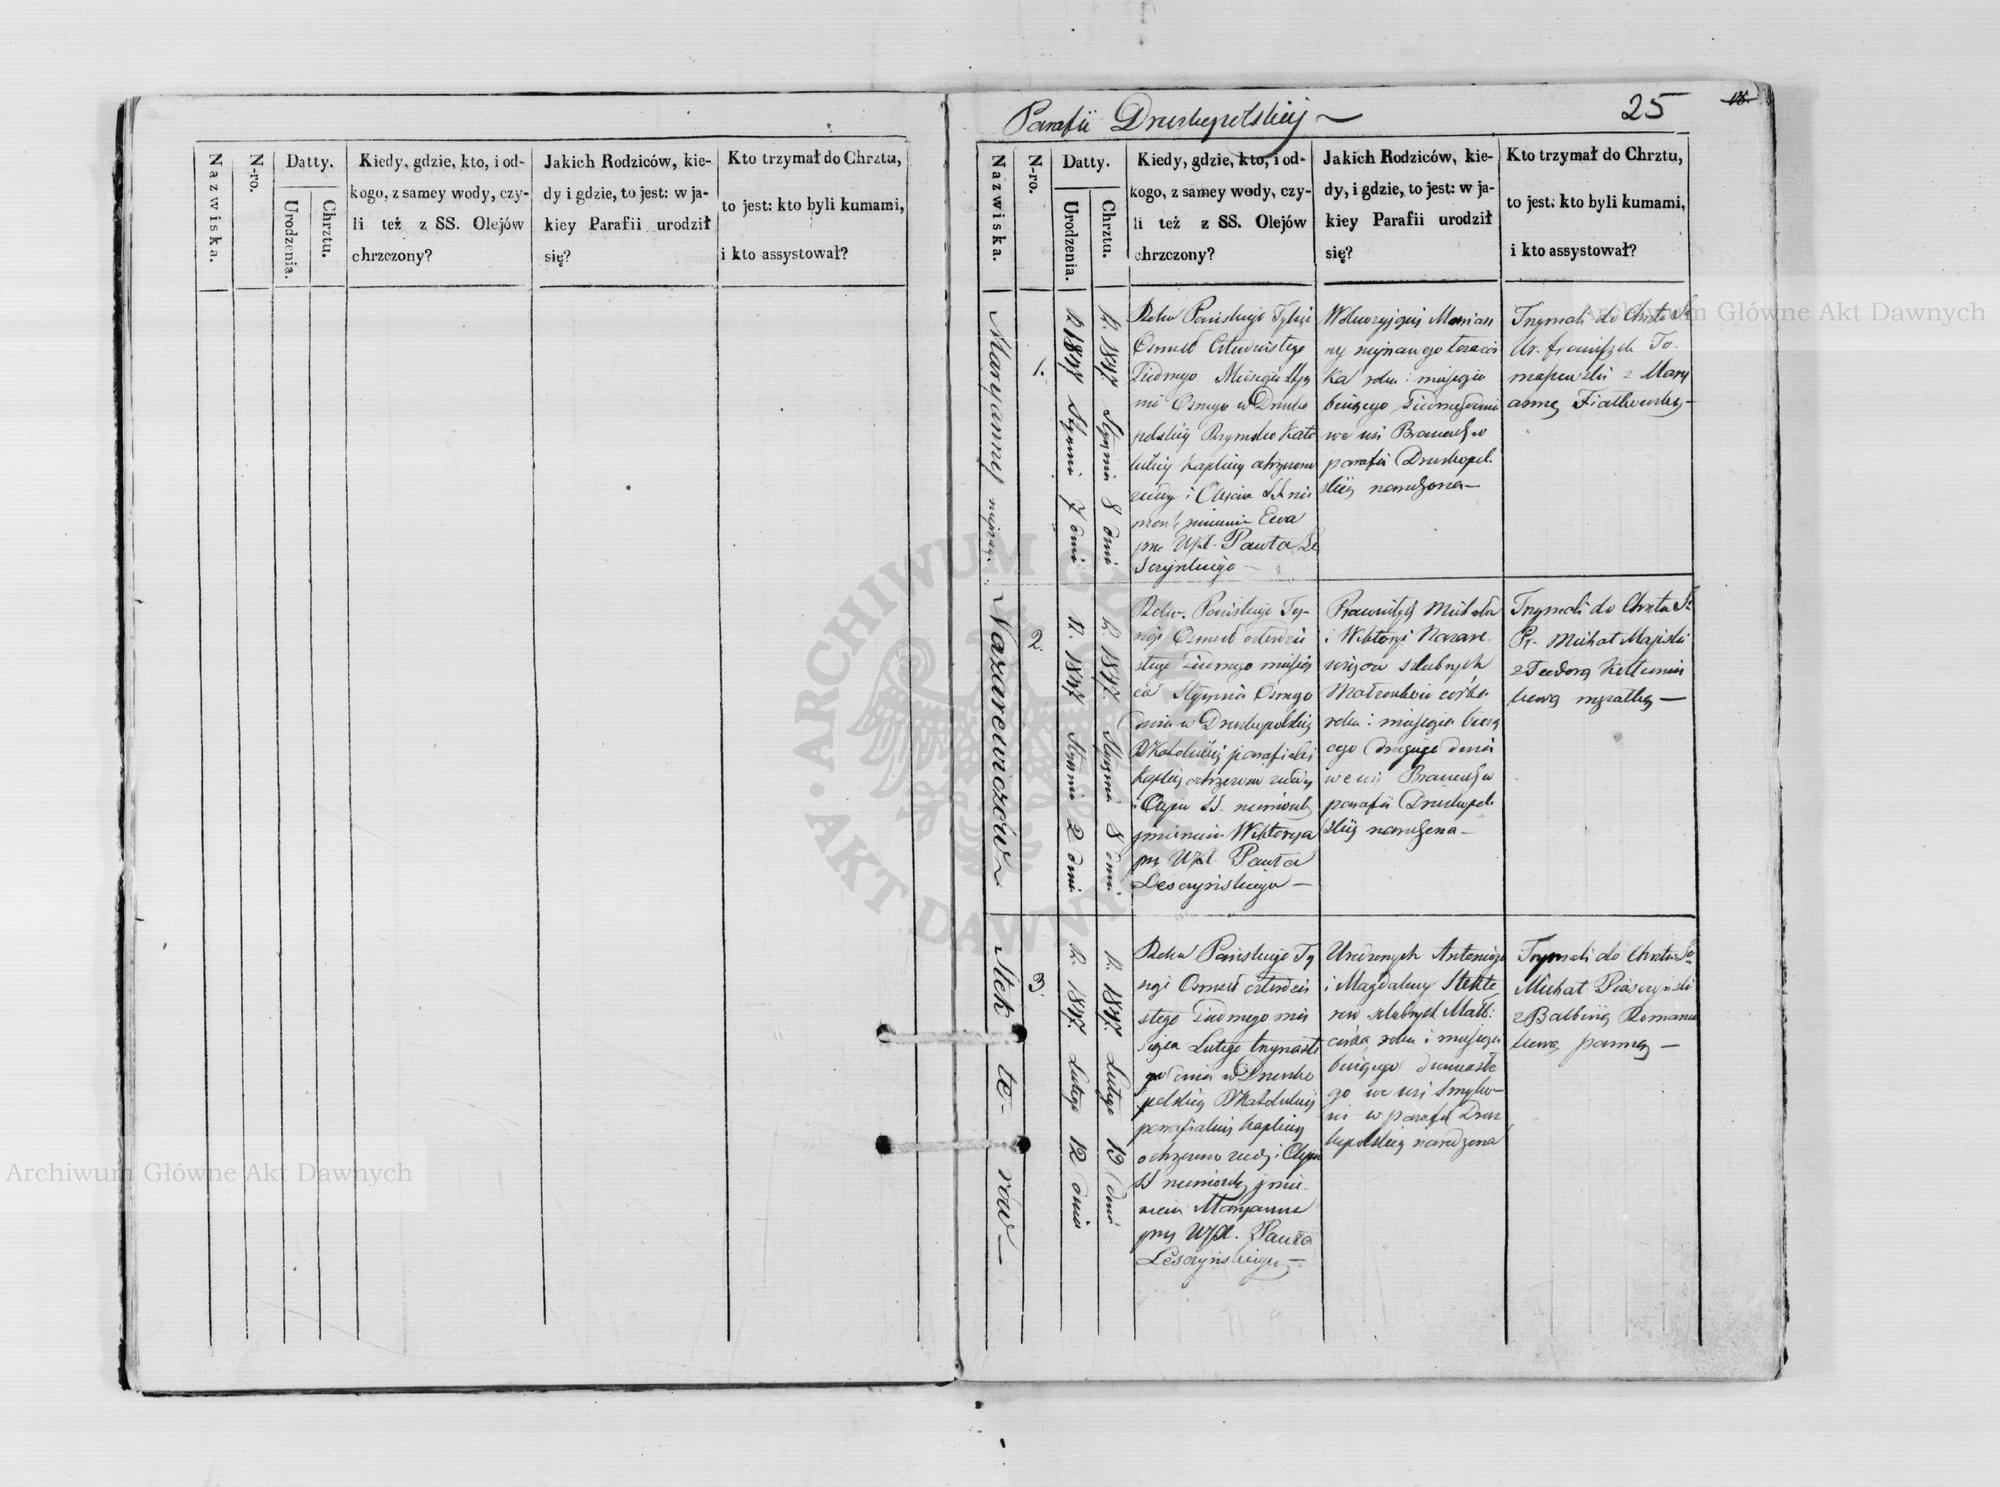 Parafii Druszkopolskiej
25
18.
Nazwiska.
N-ro.
Datty.
Urodzenia.
Chrztu.
Kiedy, gdzie, kto, i od-
kogo, z samey wody, czy-
li też z SS. Olejów
chrzczony?
Jakich Rodziców, kie-
dy i gdzie, to jest: w ja-
kiey Parafii urodził
się?
Kto trzymał do Chrztu,
to jest: kto byli kumami,
i kto assystował?
Nazwiska.
N-ro.
Datty.
Urodzenia.
Chrztu.
Kiedy, gdzie, kto, i od-
kogo, z samey wody, czy-
li też z SS. Olejów
chrzczony?
Jakich Rodziców, kie-
dy, i gdzie, to jest: w ja-
kiey Parafii urodził
się?
Kto trzymał do Chrztu,
to jest: kto byli kumami,
i kto assystował?
Maryanney
1.
R. 1847 Stycznia 7 dnia
R. 1847 Stycznia 8 dnia
Roku Pańskiego Tysiąc
Osmset Czterdziestego
Siodmego Miesiąca Stycz
nia Osmego w Druszko
polskiej Rzymsko Kato
lickiej Kaplicy ochrzczona
z wody i Olejów SS
imieniem Ewa
Pawła Le
sczyńskiego
roku i miesiąca
bieżącego Siodmego dnia
we wsi
parafii Druszkopol
skiej narodzona
Trzymali do Chrztu S.
Ur. Franciszek To
maszewski z Mary
anną Fiałkowską
Nazarewiczów
2.
R. 1847 Stycznia 2 dnia
R. 1847 Stycznia 8 dnia
Roku Pańskiego Ty-
siąc Osmset czterdzie
stego Siodmego miesią
ca Stycznia Osmego
dnia w Druszkopolskiej
RKatolickiej parafialnej
Kaplicy ochrzczona z wody
i Oleju SS
imieniem Wiktorya
Pawła
Lesczyńskiego
Pracowitych Michała
i Wiktoryi Nazare
wiczów szlubnych
Małżonków córka
roku i miesiąca bieżą
cego drugiego dnia
we wsi
parafii Druszkopol
skiej narodzona
Trzymali do Chrztu S.
Pr. Michał Majski
z Teodorą
mężatką
Stek te- rów
3.
R. 1847 Lutego 12 dnia
R. 1847 Lutego 13 dnia
Roku Pańskiego Ty
siąc Osmset czterdzie
stego Siodmego mie
siąca Lutego trzynaste
go dnia w Druszko
polskiej RKatolickiej
parafialnej Kaplicy
ochrzczona z wody i Oleju
SS imie
niem Maryanna
Pawła
Lesczyńskiego
Urodzonych Antoniego
i Magdaleny Stekte
rów szlubnych Małż:
córka roku i miesiąca
bieżącego dwunaste
go we wsi
w parafii Drusz
kopolskiej narodzona
Trzymali do Chrztu S.
Michał Piasczyński
z Balbiną Romanow
panną
Archiwum Główne Akt Dawnych
Archiwum Główne Akt Dawnych
ARCHIWUM GŁÓWNE
AKT DAWNYCH